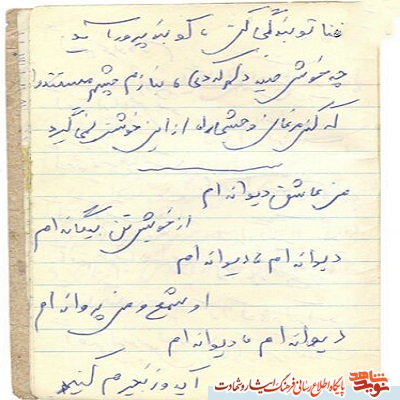 خدا تو بندگی کن ، کو بنده پرور آید
چه خوش صید دلم کردی ، بنازم چشم مستت را
که کس مرغان وحشی را از این خوشتر نمی‌گیرد
من عاشق دیوانه ام
از خویشتن بیگانه ام
دیوانه ام ، دیوانه ام
او شمع و من پروانه ام
دیوانه ام ، دیوانه ام
آید و زنجیرم کنید
نوید شاهد
پایگاه اطلاع رسانی فرهنگ ایثار و شهادت